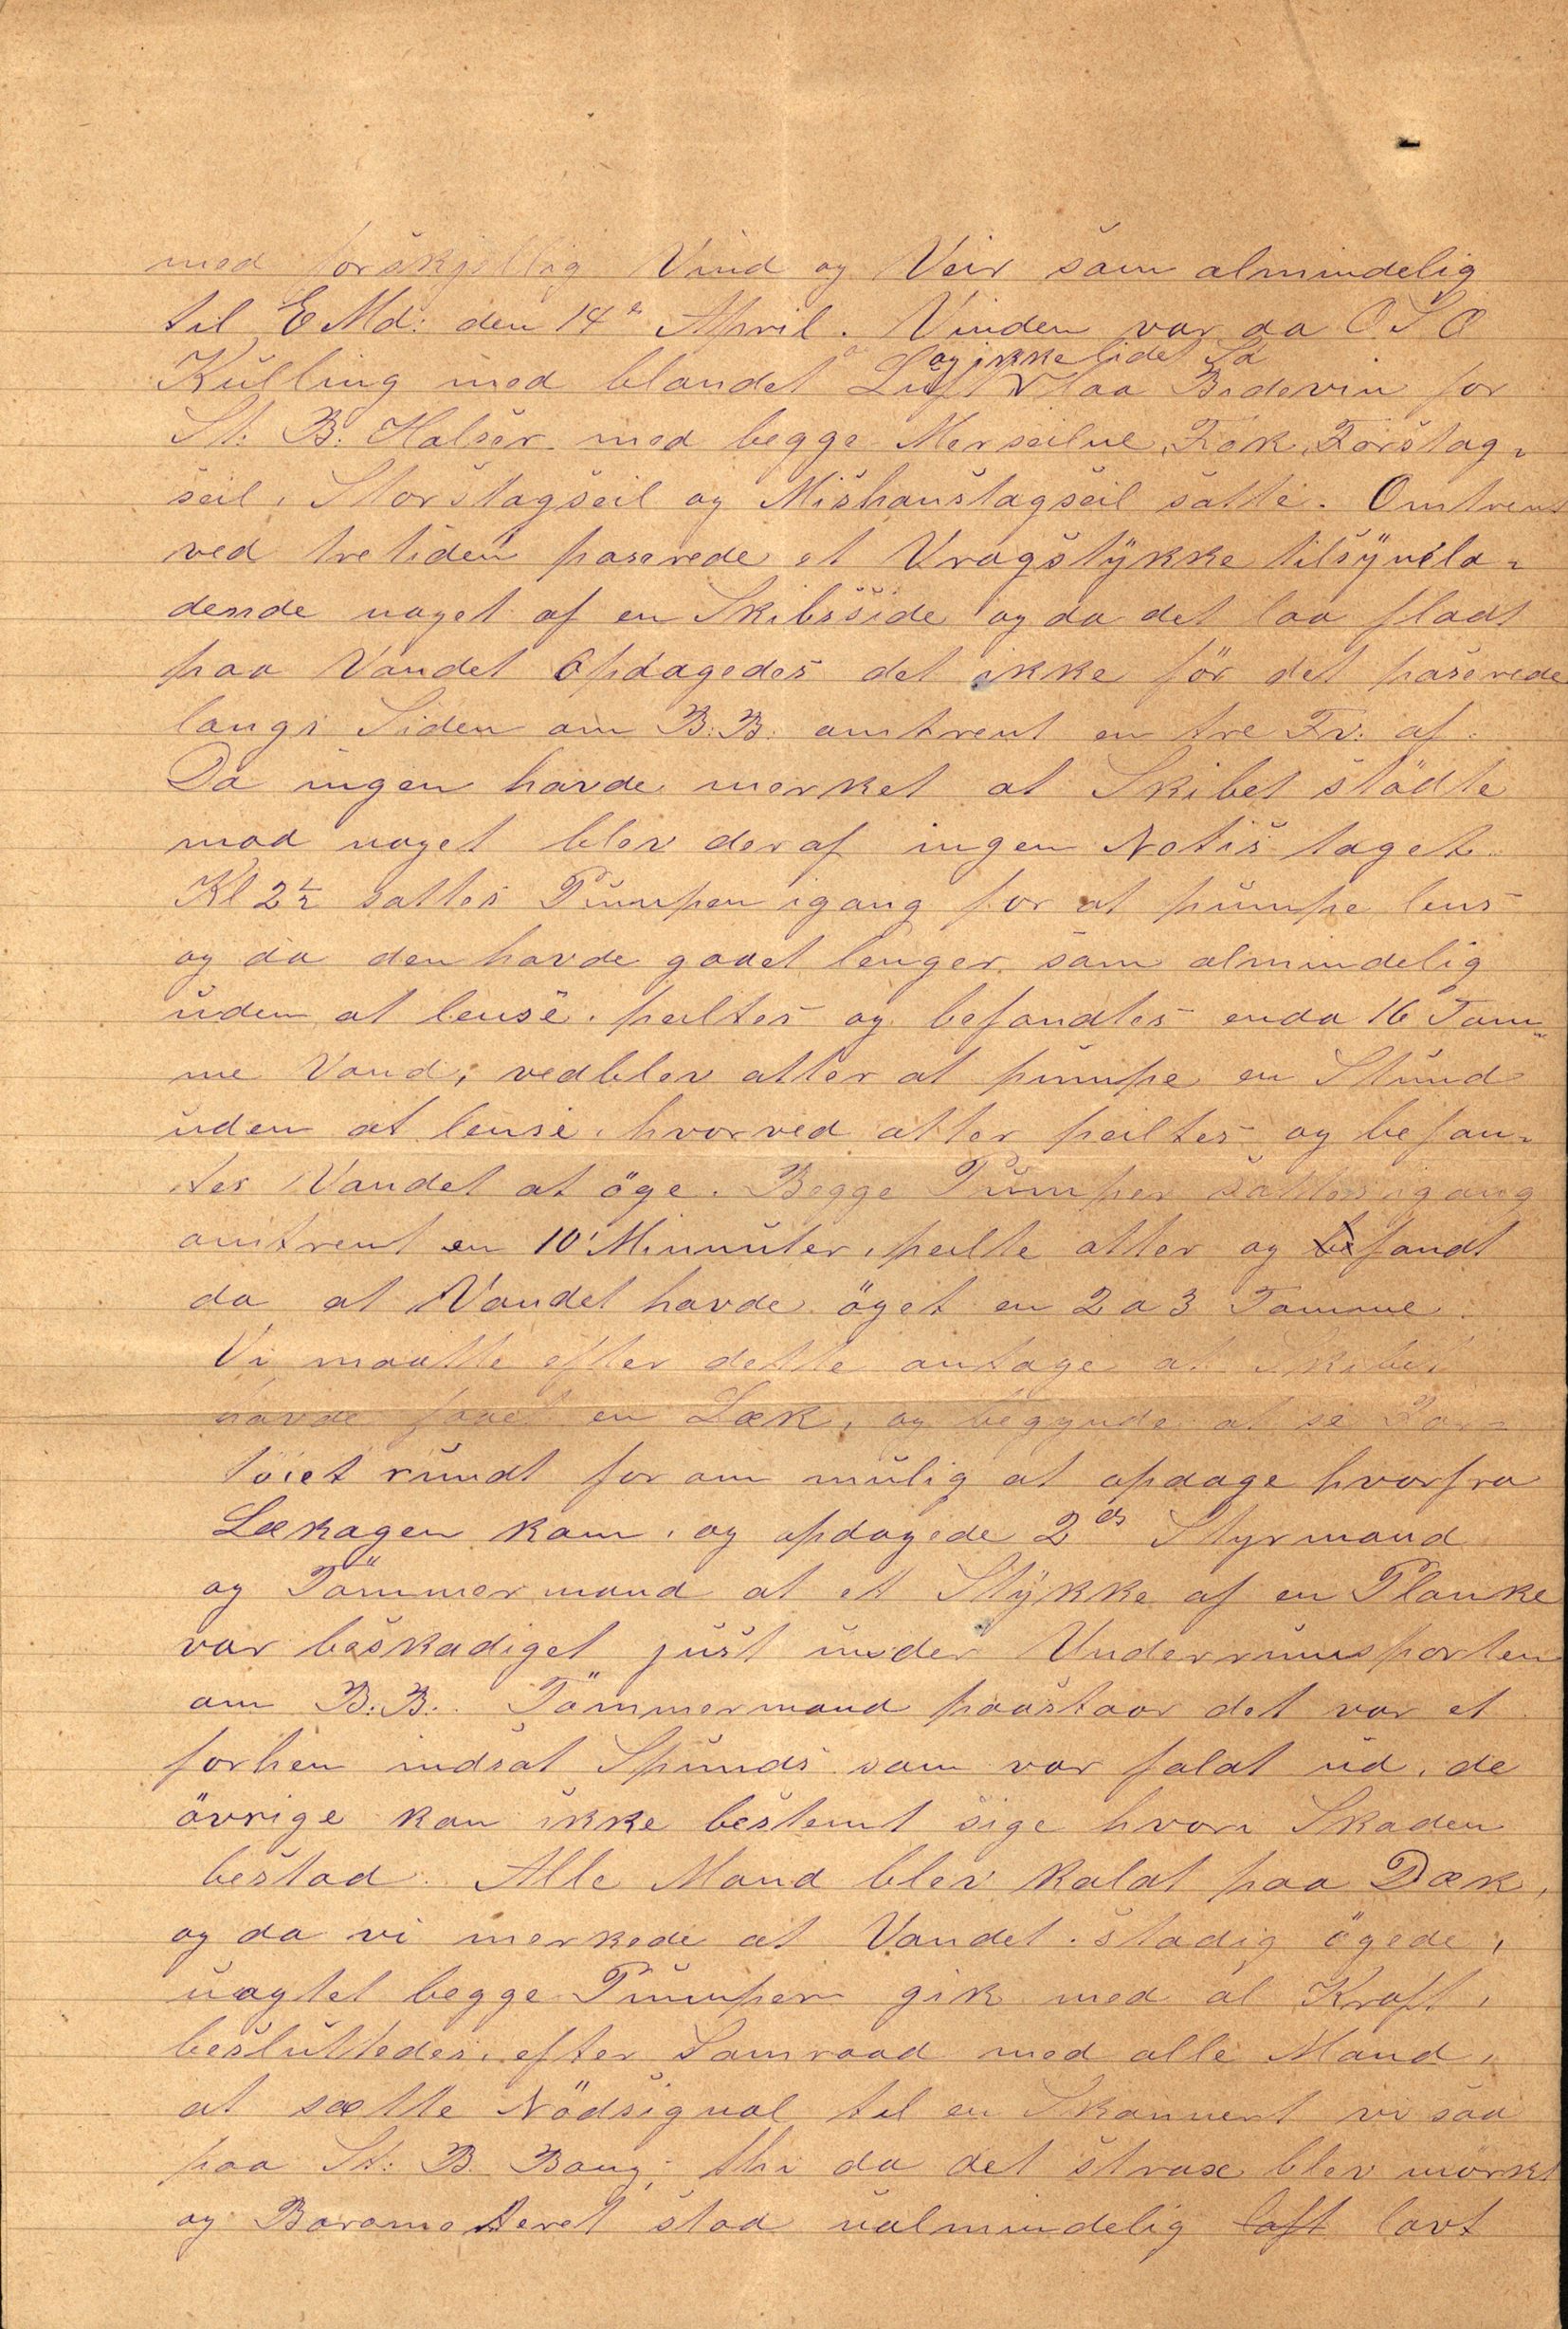 med forskjellig Vind og Veir som almindelig
til E Md: den 14e April. Vinden var da O S O
Kulling med blandet Luft og ikke lidet Sø laa Bidevin for
St: B: Halser med begge Merseilne, Fok, Forstag-
seil, Storstagseil og Mishanstagseil satte. Omtrent
ved tretiden paserede et Vragstykke tilsynela-
dende noget af en Skibsside og da det laa fladt
paa Vandet opdagedes det ikke för det paserede
langs Siden om B:B: omtrent en tre Fv: af.
Da ingen havde merket at Skibet stödte
mod noget blev deraf ingen Notis taget.
Kl 2½ sattes Pumpen igang for at pumpe lens
og da den havde gaaet lenger som almindelig
uden at lense, peiltes og befandtes enda 16 Tom-
me Vand, vedblev atter at pumpe en Stund
uden at lense, hvorved atter peiltes og befan-
tes Vandet at öge. Begge Pumper sattes igang
omtrent en 10 Minnuter, peilte atter og fandt
da at Vandet havde öget en 2 a 3 Tomme.
Vi maatte efter dette antage at Skibet
havde faaet en Læk, og begynde at se Far-
töiet rundt for om mulig at opdage hvorfra
Lækagen kom, og opdagede 2den Styrmand
og Tömmermand at ett Stykke af en Planke
var beskadiget just under Underrumsporten
om B:B:. Tömmermand paastaar det var et
forhen indsat Spunds som var faldt ud, de
övrige kan ikke bestemt sige hvori Skaden
bestod. Alle Mand blev kaldt paa Dæk,
og da vi merkede at Vandet stadig ögede,
uagtet begge Pumper gik med al Kraft,
besluttedes, efter Samraad med alle Mand,
at sætte Nödsignal til en Skonnert vi saa
paa St: B. Boug; thi da det strax blev mörkt
og Barometeret stod ualmindelig loft lavt